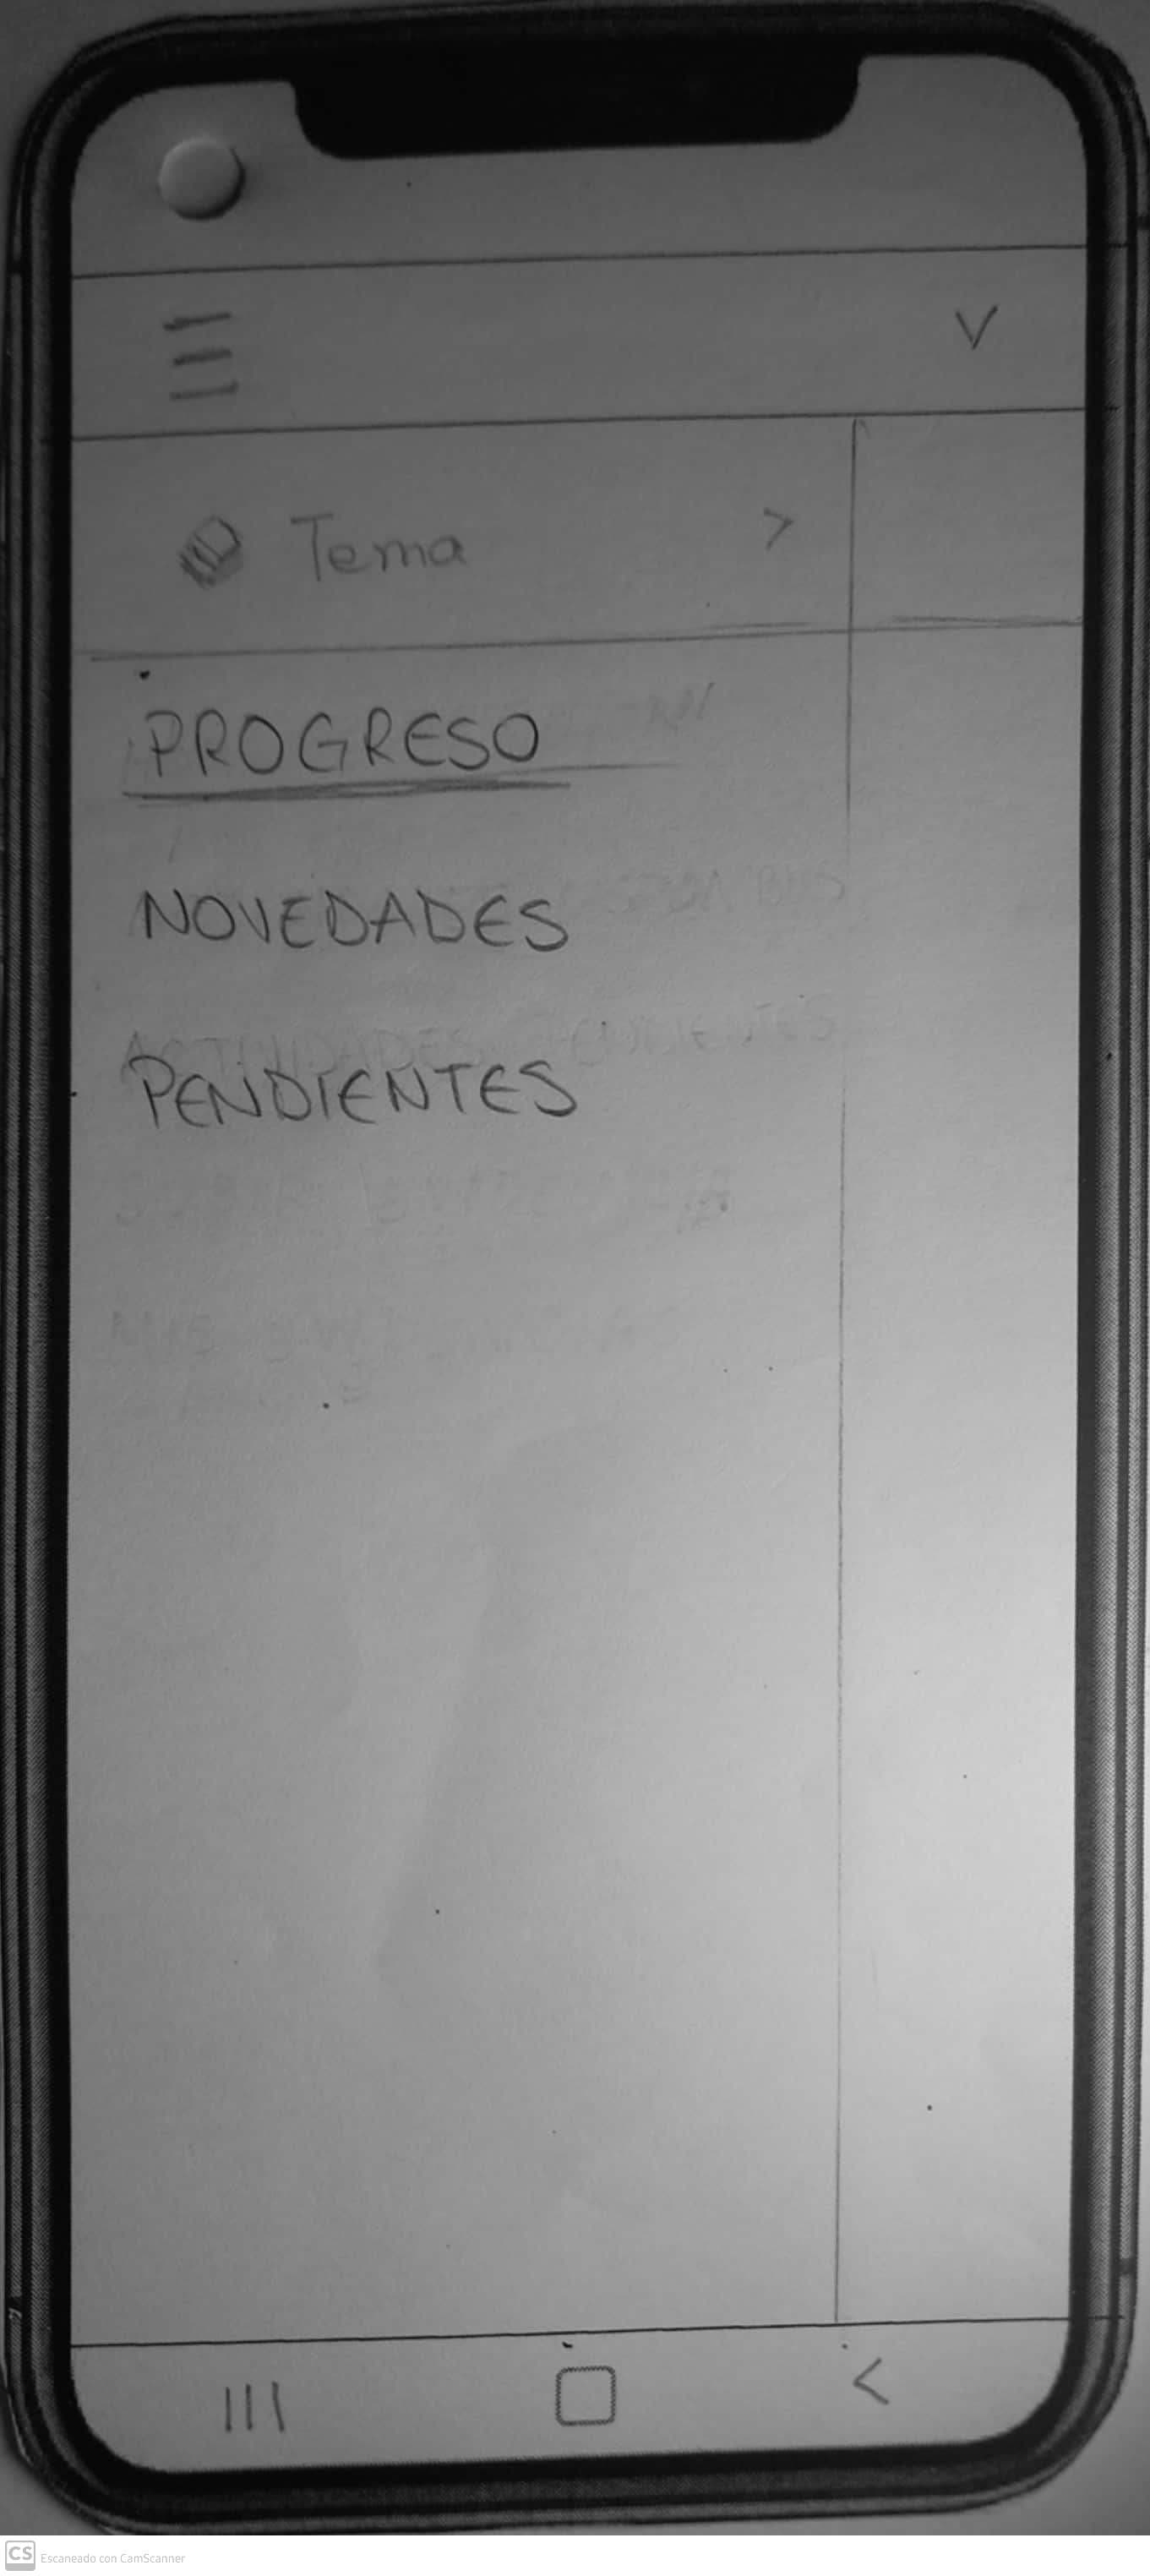 Tema >
PROGRESO
NOVEDADES
PENDIENTES
CS Escaneado con CamScanner